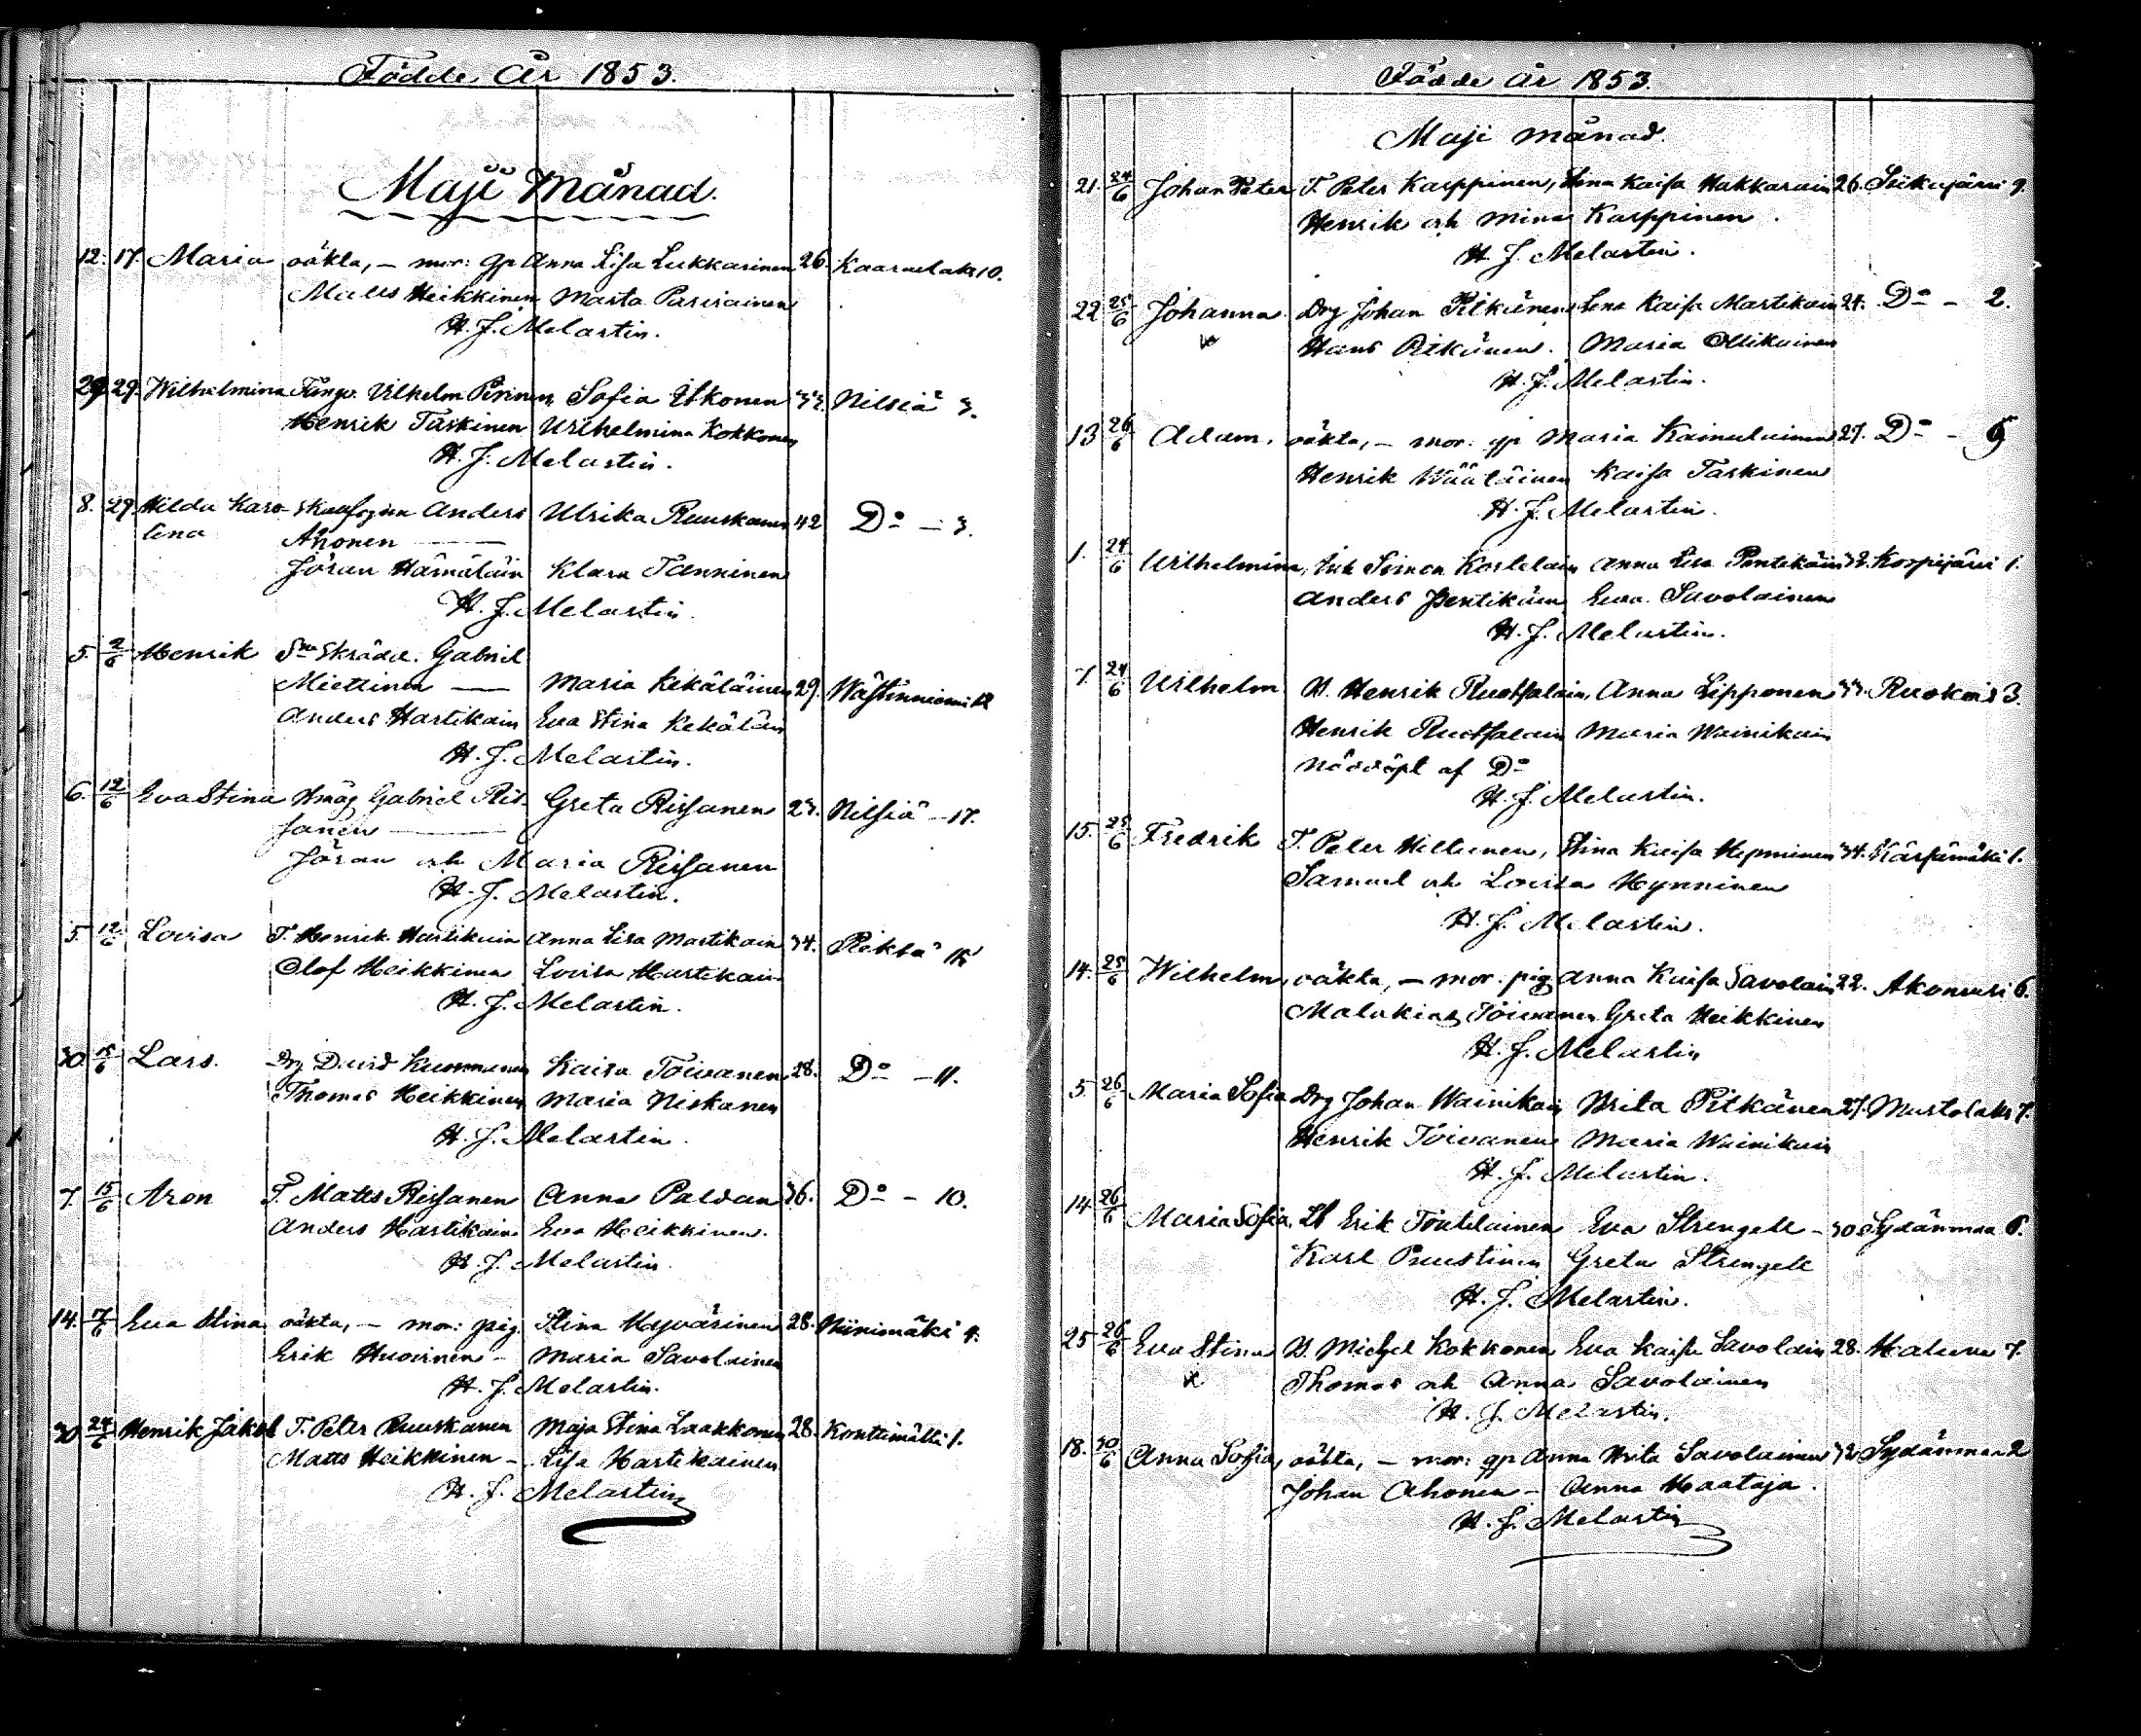 Födde År 1853.
Maji Månad.
12. 17. Maria oäkta, – mor: gp Anna Lisa Lukkarinen 26. Kaaraslaks 10.
Matts Heikkinen Marta Parviainen
H. J. Melartin.
29. 29. Wilhelmina Fångv. Vilhelm Pirinen, Sofia Itkonen 33. Nilsiä 3.
Henrik Taskinen Wilhelmina Kokkonen
H. J. Melartin.
8. 29. Hilda Karo- Anders Ulrika Ruuskanen 42 Do – 3.
lina Ahonen
Jöran Hämäläin Klara Tanninen
H. J. Melartin.
5. 2/6 Henrik Skrädd. Gabriel
Miettinen — Maria Kekäläinen 29. 12
Anders Hartikain Eva Stina Kekäläin
H. J. Melartin.
6. 12/6 Eva Stina Hmåg Gabriel Ris- Greta Rissanen 23. Nilsiä – 17.
sanen
Jöran och Maria Rissanen
H. J. Melartin.
5. 12/6 Lovisa T. Henrik Hartikain Anna Lisa Martikain 34. Rektsä 15
Olof Heikkinen Lovisa Hartikain
H. J. Melartin.
30. 15/6 Lars. Drg David Kuosmanen Kaisa Toivanen 28. Do – 11.
Thomas Heikkinen Maria Niskanen
H. J. Melartin.
7. 15/6 Aron T. Matts Rissanen Anna Paldan 36. Do – 10.
Anders Hartikain Eva Heikkinen.
H. J. Melartin.
14. 7/6 Eva Stina oäkta, – mor: pig. Stina Hyvärinen 28. Niinimäki 4.
Erik Huovinen – Maria Savolainen
H. J. Melartin.
30 24/6 Henrik Jakob T. Peter Ruuskanen Maja Stina Laakkonen 28. Kontimäki 1.
Matts Heikkinen – Lisa Hartikainen
H. J. Melartin
Födde år 1853.
Maji månad.
21. 24/6 Johan Peter T. Peter Karppinen, Stina Kaisa Hakkarain 26. Siikajärvi 9.
Henrik och Mina Karppinen.
H. J. Melartin.
22 25/6 Johanna Drg Johan Pitkänen Lena Kaisa Martikain 24. Do – 2.
Hans Pitkänen. Maria Ollikainen
H. J. Melartin.
13 26/6 Adam, oäkta, – mor: gp Maria Kainulainen 27. Do – 9
Henrik Wääläinen Kaisa Taskinen
H. J. Melartin.
1. 24/6 Wilhelmina, Inh Simon Kortelain Anna Lisa Pentikäin 32. Korpijärvi 1.
Anders Pentikäin Eva Savolainen
H. J. Melartin.
7. 24/6 Wilhelm B. Henrik Ruotsalain, Anna Lipponen 33. Ruokois 3.
Henrik Ruotsalain Maria Wainikain
nöddöpt af Do
H. J. Melartin.
15. 25/6 Fredrik T. Peter Hiltunen, Stina Kaisa Hynninen 34. Kärsämäki 1.
Samuel och Lovisa Hynninen
H. J. Melartin.
14. 25/6 Wilhelm, oäkta, – mor: pig Anna Kaisa Savolain 22. Akonvesi 6.
Malakias Toivanen Greta Heikkinen
H. J. Melartin
5. 26/6 Maria Sofia Drg Johan Wainikain Brita Pitkänen 27. Mustolaks 7.
Henrik Toivanen Maria Wainikain
H. J. Melartin.
14 26/6 Maria Sofia Lt Erik Toutelainen Eva Strengell – 30 Sydänmaa 6.
Karl Puustinen Greta Strengell
H. J. Melartin.
25 26/6 Eva Stina B. Michel Kokkonen Eva Kaisa Savolain 28. Haluna 7.
x Thomas och Anna Savolainen
H. J. Melartin.
18. 30/6 Anna Sofia, oäkta, – mor: gp Anna Brita Savolainen 32 Sydänmaa 2
Johan Ahonen – Anna Haataja.
H. J. Melartin